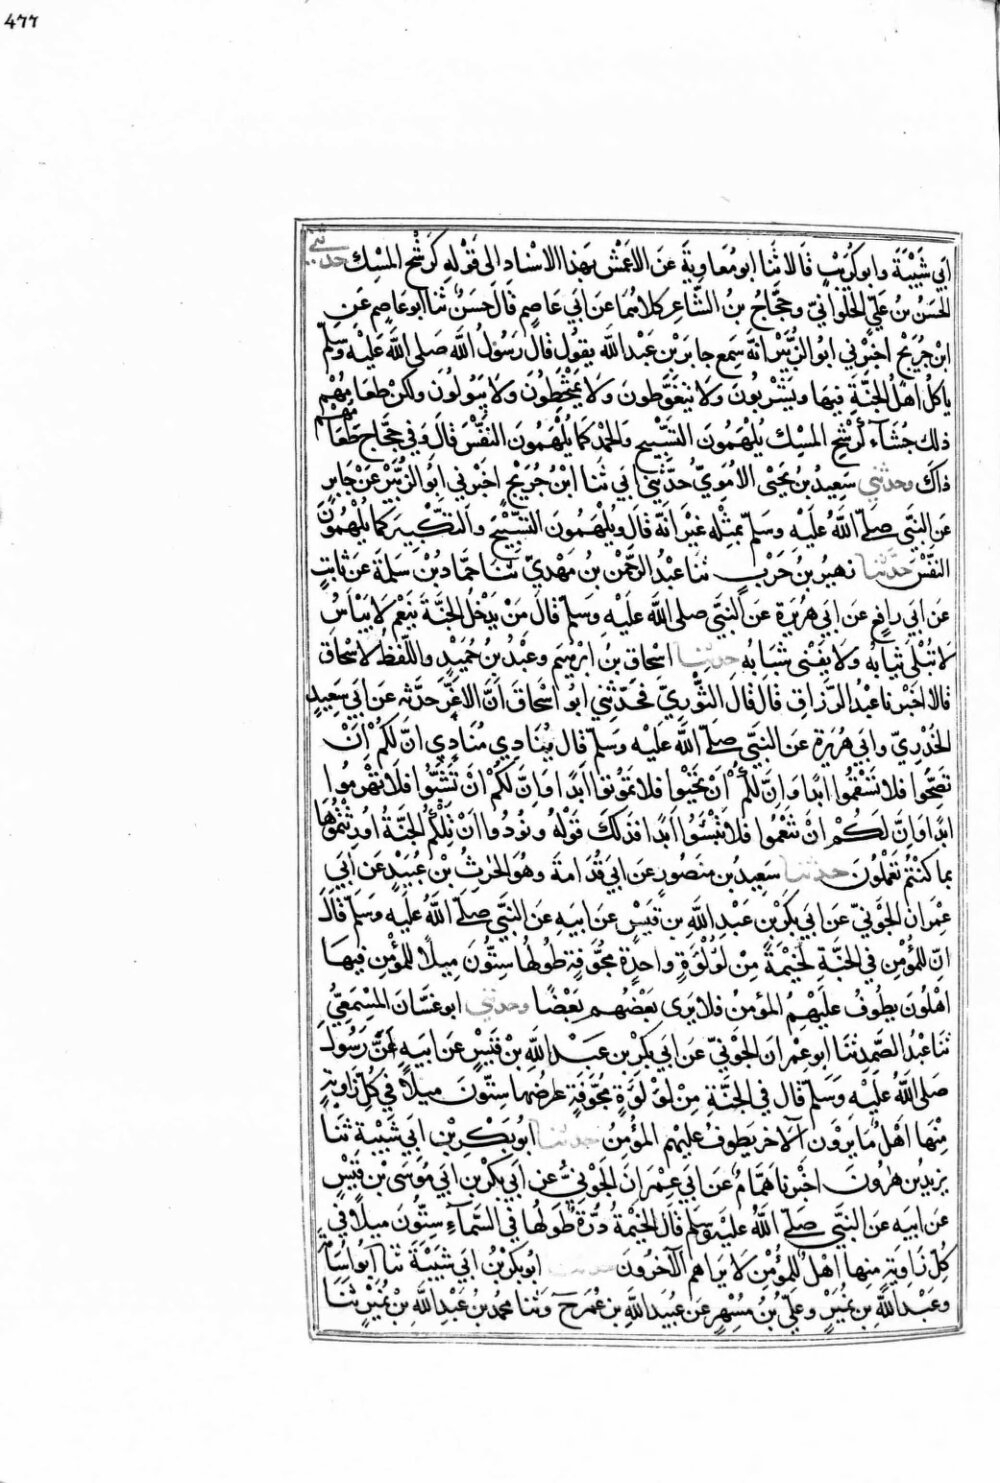 477
ابي شَيْبَةَ وابو كُرَيْبٍ قالا ثنا ابو مُعَاوِيةَ عن الاعْمَشِ بهذا الاسْنادِ الى قَوْلِهِ كَرَشْحِ المِسْكِ حدثني
الحَسَنُ بنُ عَلِيٍّ الحُلْوانيّ وحَجَّاجُ بنُ الشَّاعِرِ كلاهُما عن ابي عَاصِمٍ قال حَسَنٌ ثنا ابو عَاصِمٍ عن
ابن جُرَيْجٍ اخبرني ابو الزُّبَيْرِ انه سَمِعَ جابرَ بْنَ عبدِ الله يقول قال رَسُولُ الله صلى الله عَلَيْهِ وسَلَّمَ
ياكُلُ اهْلُ الجنَّةِ فيها ويَشْرَبُونَ ولا يَتَغَوَّطُونَ ولا يَمْتَخِطُونَ ولا يَبُولُونَ ولكنْ طعامُهُمْ
ذلك جُشَآءٌ كَرَشْحِ المِسْكِ يُلْهَمُونَ التَّسْبِيحَ والحَمْدَ كما يُلْهَمُونَ النَّفَسَ قال وفي حَجَّاجٍ طَعَامُهُمْ
ذاكَ وحدثني سَعِيدُ بن يَحْيَى الأُمَوِيُّ حدّثني ابي ثنا ابْنُ جُرَيْجٍ اخبرني ابو الزُّبَيْرِ عنْ جابرٍ
عن النبيّ صلى اللهُ عَلَيْهِ وسلّمَ بمثْلِهِ غَيْرَ انّه قال ويُلْهَمُونَ التَّسْبِيحَ والتكْبِيرَ كما يُلْهَمُونَ
النَّفَسَ حدّثنا زهيرُ بن حَرْبٍ ثنا عبْدُ الرَّحْمنِ بن مَهْديّ ثنا حَمَّادُ بْنُ سَلَمَةَ عن ثابتٍ
عن ابي رافِعٍ عن ابي هُرَيْرَةَ عن النَّبيّ صلى الله عَلَيْهِ وسَلّمَ قال مَنْ يَدْخُلُ الجنَّةَ يَنْعَم لا يَبْأسُ
لا تَبْلَى ثِيَابُهُ ولا يَفْنَى شَبَابُه حدثنا اسحاق بن ابرهيم وعَبْدُ بن حُمَيْدٍ واللّفظُ لاسحاقَ
قالا اخبرنا عبْدُ الرّزاق قال قال الثَّوْرِيّ فحَدّثني ابو اسْحاقَ انَّ الاَغَرَّ حدّثه عن ابي سَعيدٍ
الخُدْرِيّ وابي هُرَيْرَةَ عن النبيّ صلى الله عَلَيْهِ وسلّمَ قال يُنَادِي مُنَادٍ انّ لكُمْ اَنْ
تَصِحُّوا فلا تَسْقَمُوا ابدًا وانّ لكُمْ اَنْ تَحْيَوْا فلا تَمُوتُوا ابدًا وانّ لكُمْ اَنْ تَشِبُّوا فلا تَهْرَمُوا
ابدًا وانّ لَكُمْ اَنْ تَنْعَمُوا فلا تَبْئَسُوا اَبدًا فذلك قَوْلُهُ ونُودُوا اَنْ تِلْكُمُ الجَنَّةُ اُورِثْتُمُوها
بما كُنْتُمْ تَعْمَلُونَ حدثنا سَعِيدُ بن مَنْصُورٍ عن ابي قُدَامَةَ وهُوَ الحٰرِثُ بْنُ عُبَيْدٍ عن ابي
عِمْرانَ الجَوْنيّ عن ابي بكرِ بْنِ عَبْدِ الله بن قَيْسٍ عن ابيهِ عن النّبيّ صلى اللهُ عليه وسلم قال
انّ للمُؤْمِنِ في الجَنَّةِ لَخَيْمَةً مِنْ لُؤْلُؤَةٍ واحدةٍ مُجَوَّفةٍ طولُها ستُّونَ مِيلًا للمُؤْمِنِ فيها
اهْلُونَ يَطُوفُ علَيْهِمُ المُؤْمِنُ فلا يَرَى بَعْضُهُم بَعْضًا وحدثني ابو غَسَّانَ المِسْمَعِيُّ
ثنا عبْدُ الصَّمَدِ ثنا ابو عِمْرانَ الجَوْنيّ عن ابي بَكْرِ بن عَبْدِ اللهِ بْنِ قَيْسٍ عن ابيهِ اَنَّ رسُولَ
صلى اللهُ عليْهِ وسَلّمَ قال في الجَنّةِ مِنْ لُؤْلُؤةٍ مُجَوّفَةٍ عَرْضُها ستّونَ ميلًا في كُلِّ زاويةٍ
مِنْها اهْلٌ ما يَرَوْنَ الآخَرِ يَطُوفُ عليهم المُؤْمِنُ حدثنا ابو بَكْرِ بْنِ ابي شَيْبَةَ ثنا
يزيدُ بن هٰرُونَ اخْبرنا هَمَّامٌ عن ابي عِمْرانَ الجَوْنيّ عن ابي بكرِ بن ابي مُوسَى بْن قَيْسٍ
عن ابيهِ عن النبيّ صلى اللهُ عليْهِ وسَلّم قال الخَيْمَةُ دُرَّةٌ طُولُها في السَّمَآءِ سِتُّونَ مِيلًا في
كُلِّ زاويةٍ منها اهْلٌ للمُؤْمِنِ لا يَرَاهم الآخرُونَ حدثنا ابو بَكْرِ بْنُ ابي شَيْبَةَ ثنا ابو اُسَامَةَ
وعَبْدُ اللهِ بن نُمَيْرٍ وعليُّ بنُ مُسْهِرٍ عن عُبَيْدِ اللهِ بن عُمَرَ ح وثنا محمدُ بن عَبْدِ اللهِ بْنِ نُمَيْرٍ ثنا